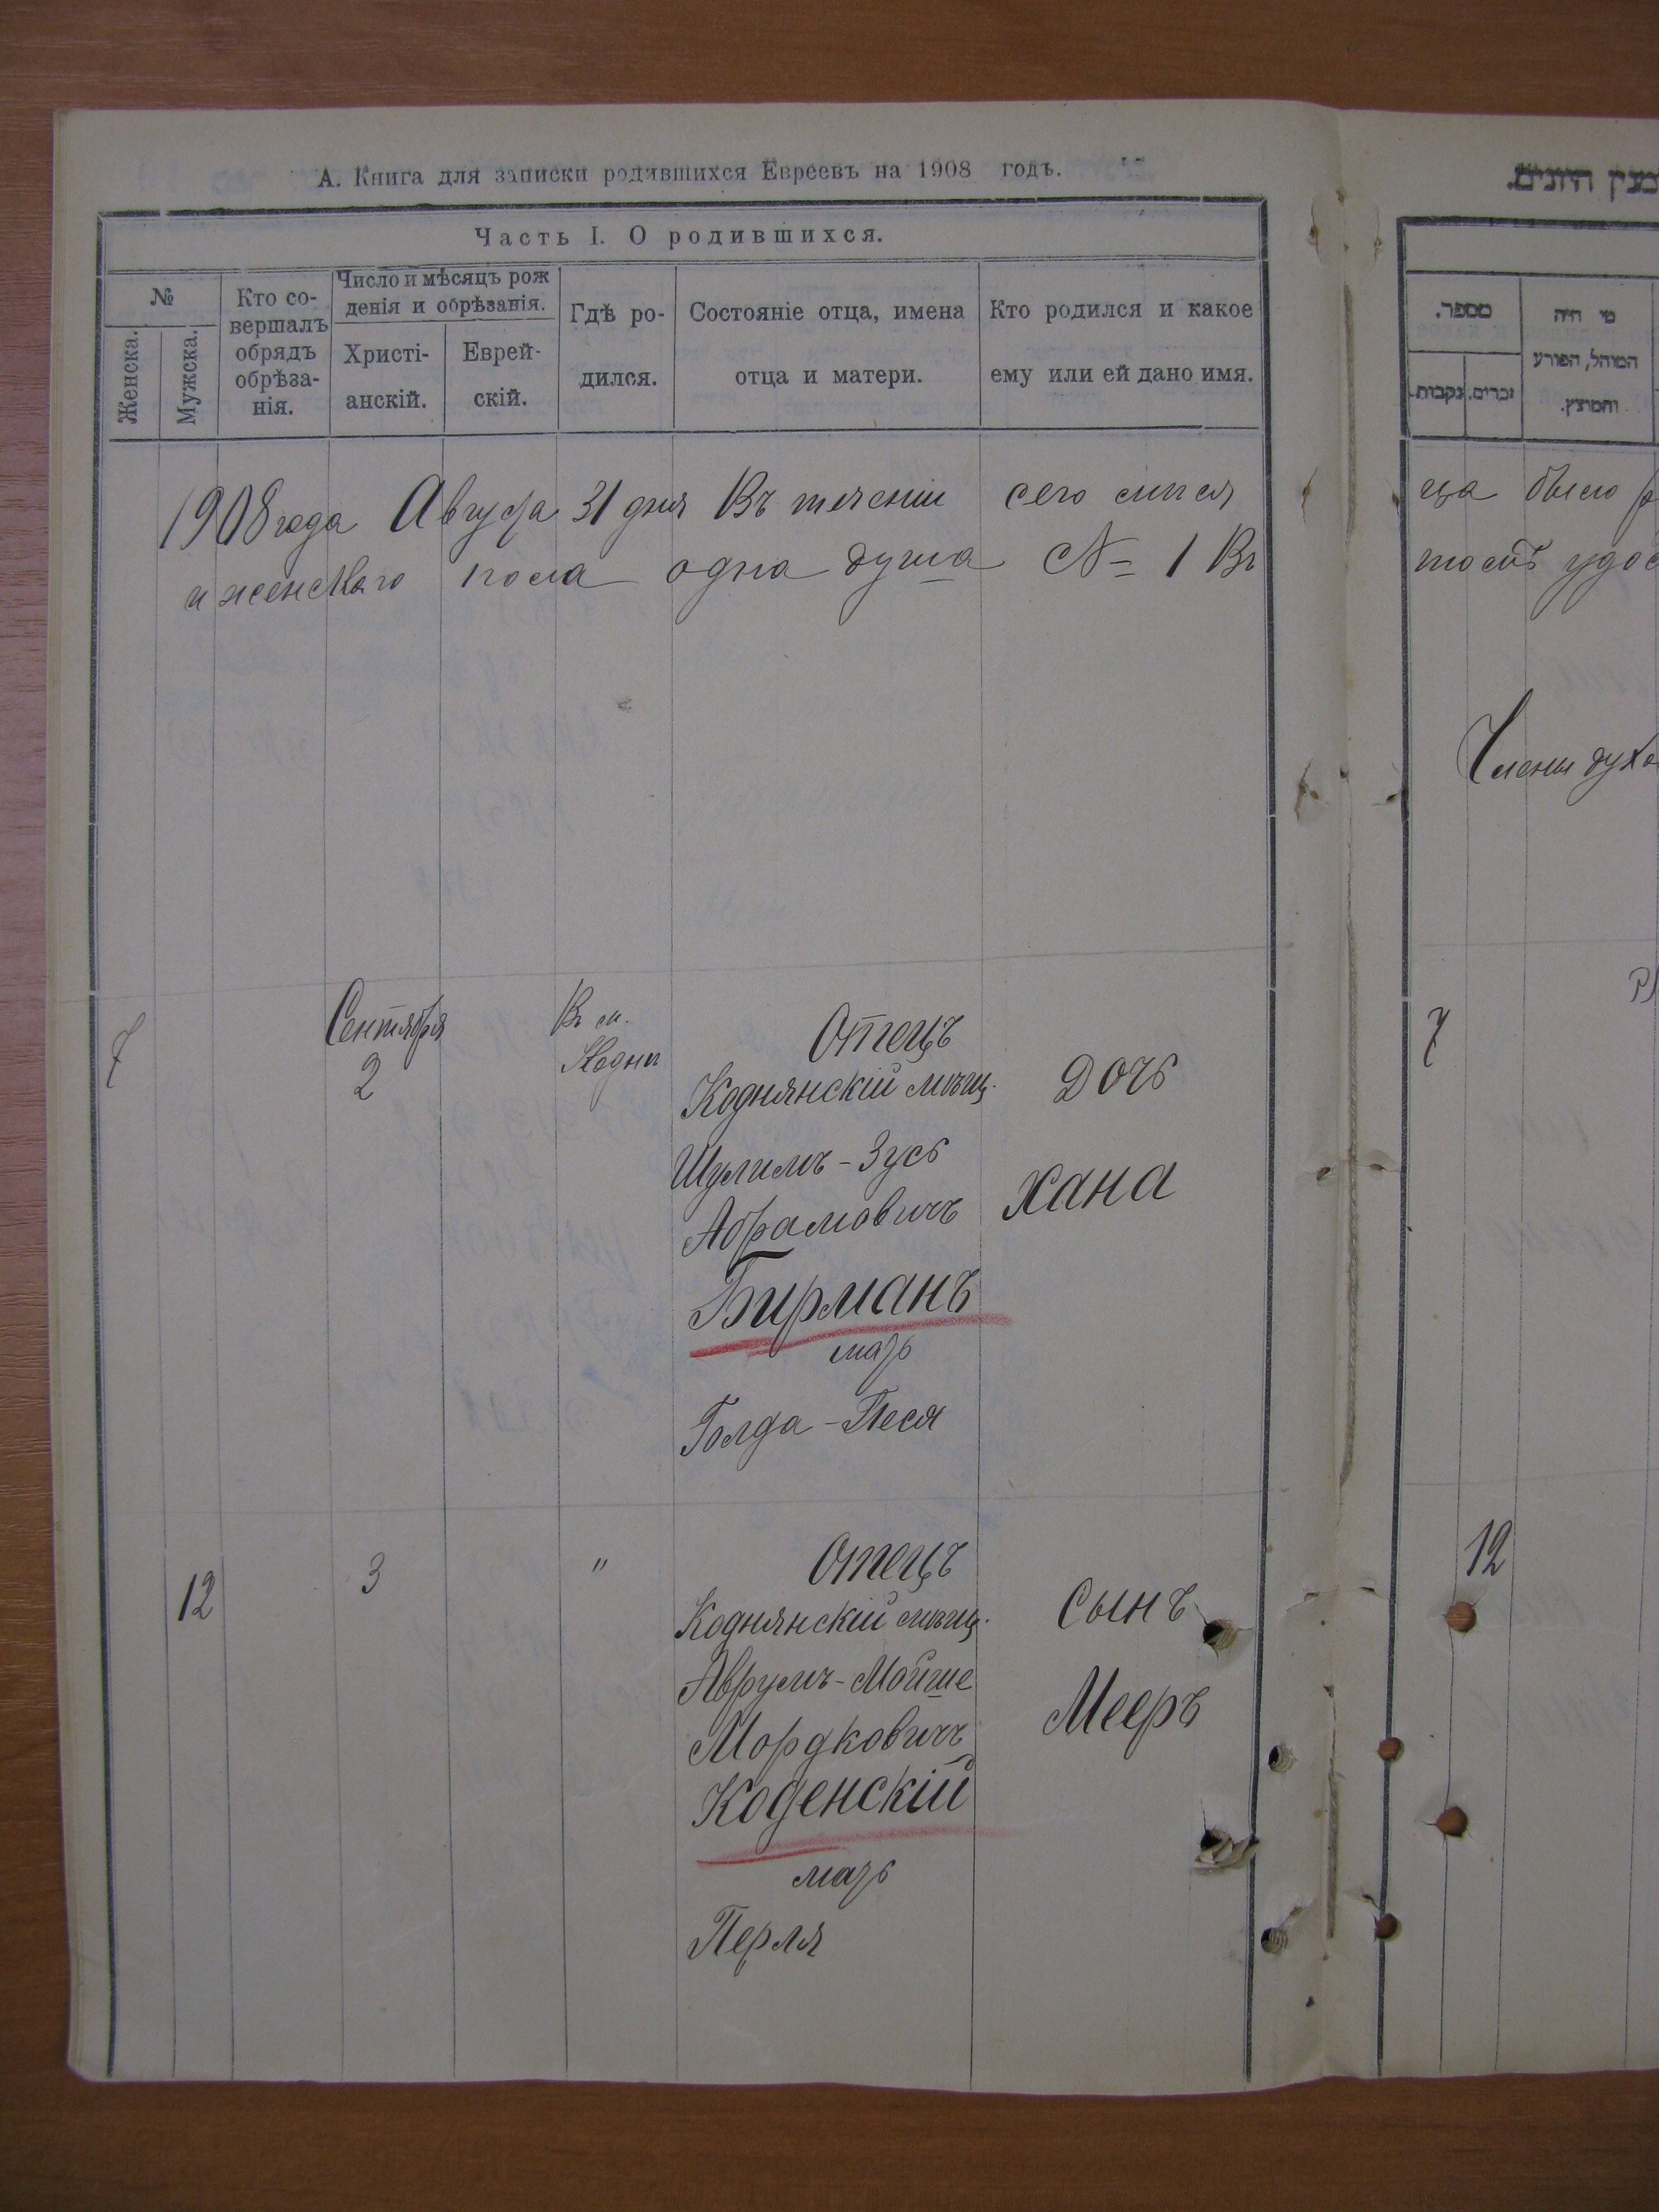 А. Книга для записки родившихся Евреевъ на 1908 годъ.
Часть I. О родившихся.
№
Женска.
Мужска.
Кто со-
вершалъ
обрядъ
обрѣза-
нія.
Число и мѣсяцъ рож
денія и обрѣзанія.
Христі-
анскій.
Еврей-
скій.
Гдѣ ро-
дился.
Состояніе отца, имена
отца и матери.
Кто родился и какое
ему или ей дано имя.
1908 года Августа 31 дня Въ теченіи сего
и женскаго пола одна душа № 1 Въ
7
Сентября
2
Въ м.
Кодни
Отецъ
Коднянскій мѣщ.
Шулимъ-Зусь
Абрамовичъ
Бирманъ
мать
Голда-Песя
Дочь
Хана
12
3
"
Отецъ
Коднянскій мѣщ.
Аврумъ-Мойше
Мордковичъ
Коденскій
мать
Перля
Сынъ
Мееръ
מספר.
נקבות.
זכרים.
מי היה
המוהל, הפורע
והמוצץ.
ца было
Члены
7
12